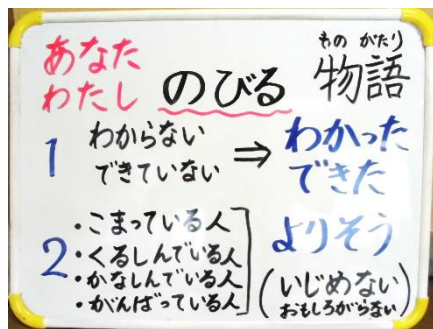 あなた
わたし
のびる
もの がたり
物語
1 わからない
できていない
⇒ わかった
できた
2 ・こまっている人
・くるしんでいる人
・かなしんでいる人
・がんばっている人
よりそう
(いじめない
おもしろがらない)